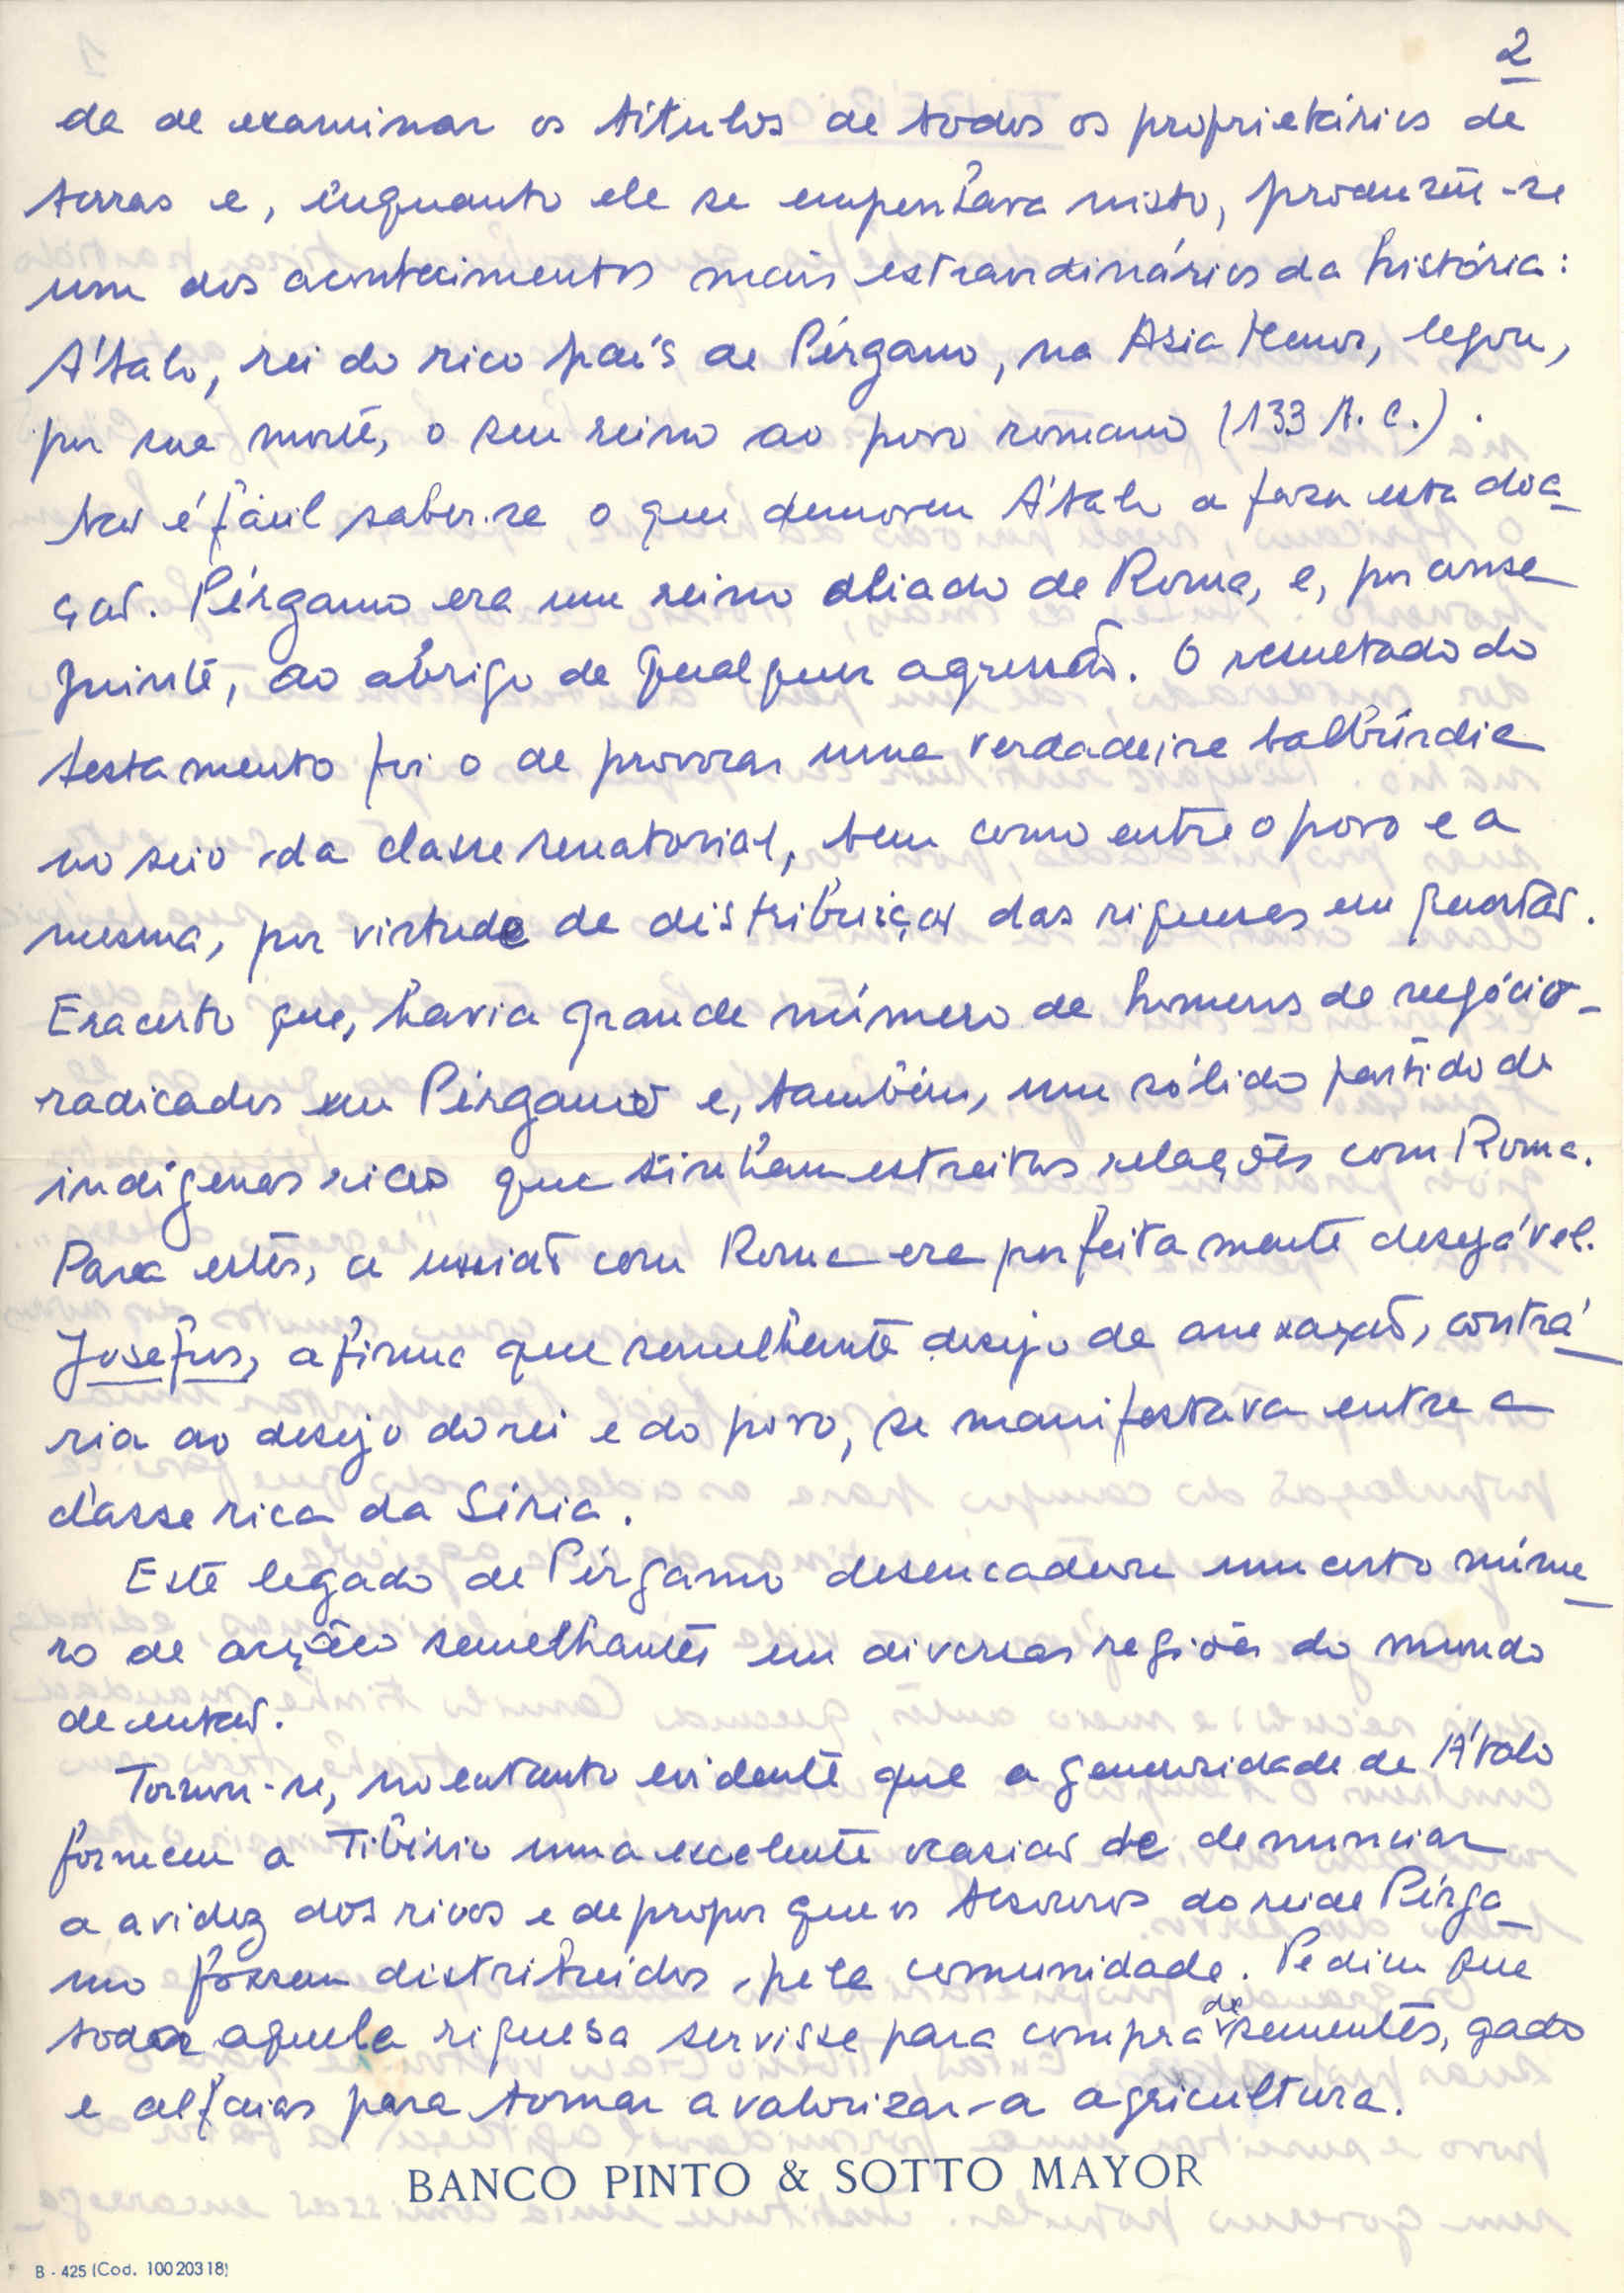 2
da de examinar os títulos de todos os proprietários de
terras e, enquanto ele se empenhava nisto, produziu-se
um dos acontecimentos mais extraordinários da história:
Átalo, rei do rico país de Pérgamo, na Asia Menor, legou,
por sua morte, o seu reino ao povo romano (133 A. C.).
Não é fácil saber-se o que demoveu Átalo a fazer esta doa-
ção. Pérgamo era um reino aliado de Roma, e, por conse-
quinte, ao abrigo de qualquer agressão. O resultado do
testamento foi o de provocar uma verdadeira balbúrdia
no seio da classe senatorial, bem como entre o povo e a
mesma, por virtude de distribuição das riquezas em questão.
Era certo que, havia grande número de homens de negócio-
radicados em Pérgamo e, também, um sólido partido de
indígenas ricos que tinham estreitas relações com Roma.
Para estes, a união com Roma era perfeitamente desejável.
Josefus, afirma que semelhante desejo de anexação, contrá-
ria ao desejo do rei e do povo, se manifestava entre a
classe rica da Síria.
Este legado de Pérgamo desencadeou um certo núme-
ro de acções semelhantes em diversas regiões do mundo
de então.
Tornou-se, no entanto evidente que a generosidade de Átalo
forneceu a Tibério uma excelente ocasião de denunciar
a avidez dos ricos e de propor que os tesouros do rei de Pérga-
mo fossem distribuidos pela comunidade. Pediu que
toda aquela riquesa servisse para compra de sementes, gado
e alfaias para tornar a valorizar-a agricultura.
BANCO PINTO & SOTTO MAYOR
B - 425 (Cod. 10020318)